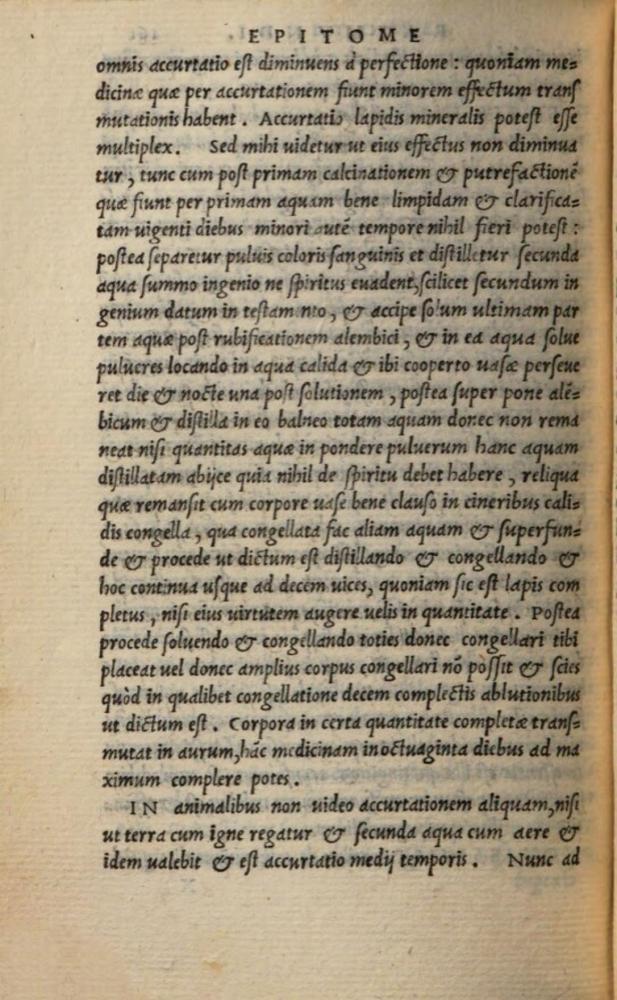 EPITOME
omnis accurtatio est diminuens à perfectione : quoniam me=
dicinæ quæ per accurtationem fiunt minorem effectum trans
mutationis habent . Accurtatio lapidis mineralis potest esse
multiplex . Sed mihi uidetur ut eius effectus non diminua
tur , tunc cum post primam calcinationem & putrefactionē
quæ fiunt per primam aquam bene limpidam & clarifica=
tam uigenti diebus minori autē tempore nihil fieri potest :
postea separetur puluis coloris sanguinis et distilletur secunda
aqua summo ingenio ne spiritus euadent, scilicet secundum in
genium datum in testam nto , & accipe solum ultimam par
tem aquæ post rubificationem alembici , & in ea aqua solue
pulueres locando in aqua calida & ibi cooperto uasæ perseue
ret die & nocte una post solutionem , postea super pone alē=
bicum & distilla in eo balneo totam aquam donec non rema
neat nisi quantitas aquæ in pondere puluerum hanc aquam
distillatam abijce quia nihil de spiritu debet habere , reliqua
quæ remansit cum corpore uase bene clauso in cineribus cali=
dis congella , qua congellata fac aliam aquam & superfun=
de & procede ut dictum est distillando & congellando &
hoc continua usque ad decem uices, quoniam sic est lapis com
pletus , nisi eius uirtutem augere uelis in quantitate . Postea
procede soluendo & congellando toties donec congellari tibi
placeat uel donec amplius corpus congellari nō possit & scies
quòd in qualibet congellatione decem complectis ablutionibus
ut dictum est . Corpora in certa quantitate completæ trans=
mutat in aurum, hāc medicinam in octuaginta diebus ad ma
ximum complere potes .
IN animalibus non uideo accurtationem aliquam, nisi
ut terra cum igne regatur & secunda aqua cum aere &
idem ualebit & est accurtatio medij temporis . Nunc ad